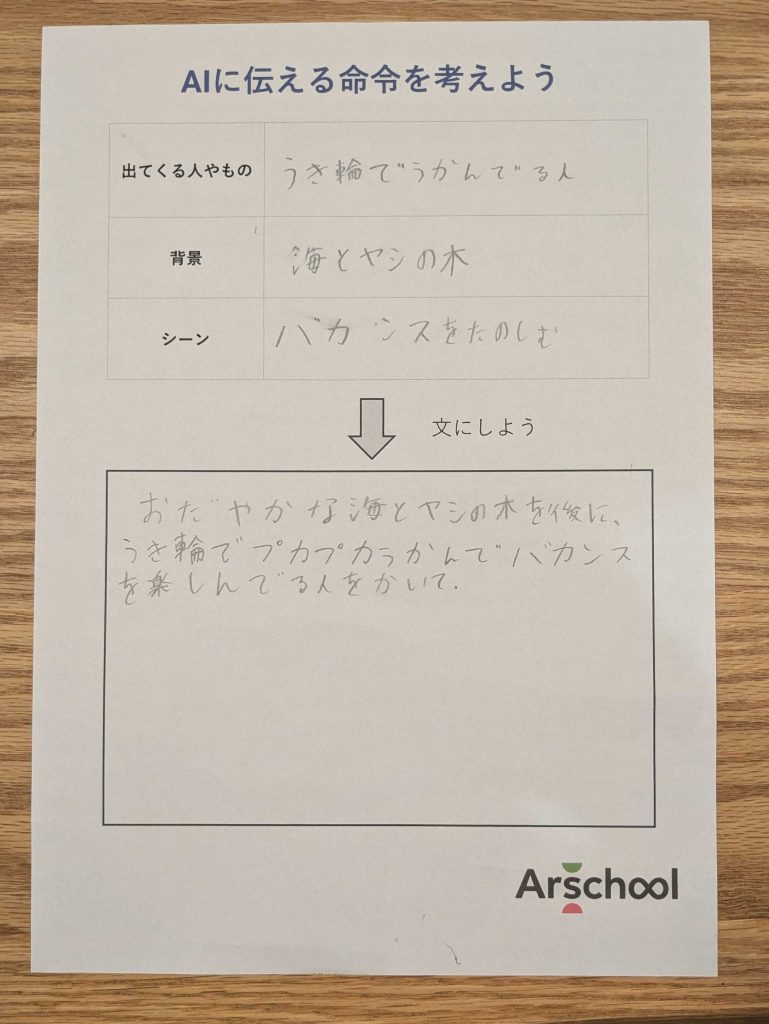 AIに伝える命令を考えよう
出てくる人やもの
うき輪でうかんでる人
背景
海とヤシの木
シーン
バカンスをたのしむ
文にしよう
おだやかな海とヤシの木を後に、
うき輪でプカプカうかんでバカンス
を楽しんでる人をかいて.
Arschool